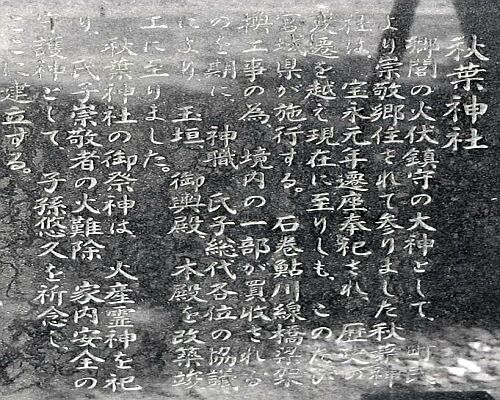 秋葉神社
郷閭の火伏鎮守の大神として、町民
より崇敬郷住されて参りました秋葉神
社は、宝永元年遷座奉祀され、歴史の
変遷を越え現在に至りしも、このたび
宮城県が施行する。石巻鮎川線橋梁架
換工事の為、境内の一部が買収される
のを期に、神職、氏子総代各位の協議
により、玉垣、御輿殿、本殿を改築竣
工に至りました。
秋葉神社の御祭神は、火産霊神を祀
り、氏子崇敬者の火難除、家内安全の
守護神として、子孫悠久を祈念し、
ここに建立する。